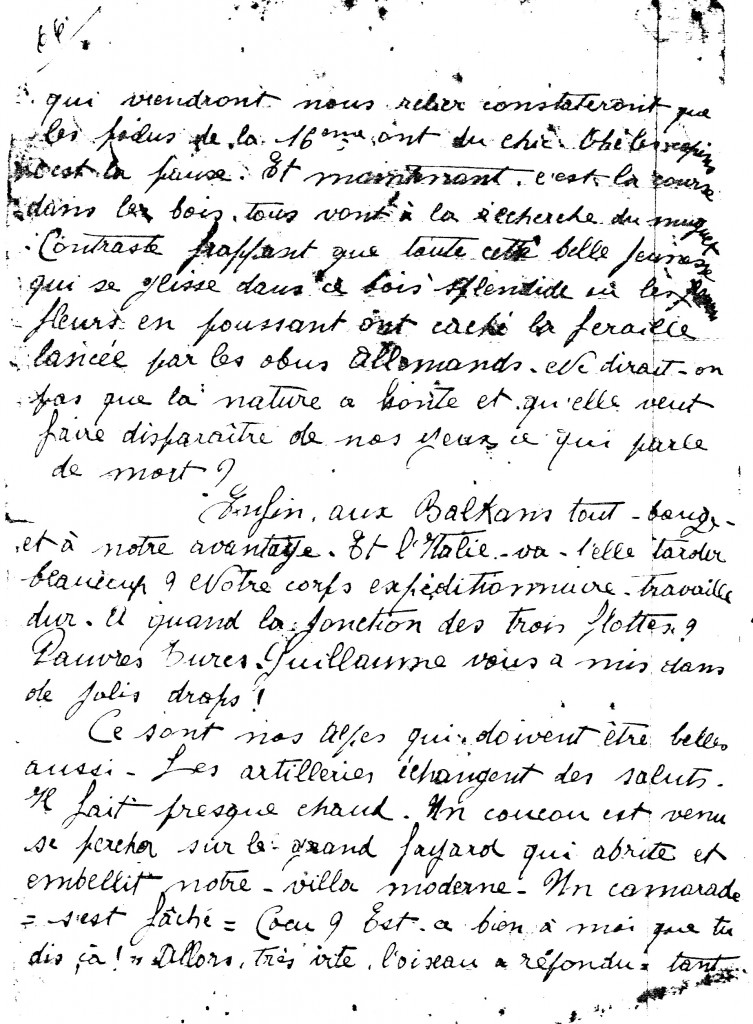 qui viendront nous relier constateront que
les poilus de la 16eme ont du chic. Ohé les copins
c'est la pause. Et maintenant. c'est la course
dans les bois. tous vont à la recherche du muguet
Contraste frappant que toute cette belle jeunesse
qui se glisse dans ce bois splendide ou les
fleurs en poussant ont caché la feraille
lancée par les obus Allemands. Ne dirait-on
pas que la nature a honte et qu'elle veut
faire disparaître de nos yeux ce qui parle
de mort ?
Enfin, aux Balkans tout bouge
et à notre avantage. Et l'Italie va-t'elle tarder
beaucoup ? Notre corps expéditionnaire travaille
dur. A quand la jonction des trois flottes ?
Pauvres Turcs. Guillaume vous a mis dans
de jolis draps !
Ce sont nos Alpes qui doivent être belles
aussi - Les artilleries échangent des saluts.
Il fait presque chaud. Un coucou est venu
se percher sur le grand fayard qui abrite et
embellit notre villa moderne - Un camarade
= s'est fâché = Cocu ? Est-ce bien à moi que tu
dis çà ! » Allors, très vite, l'oiseau a répondu : tant